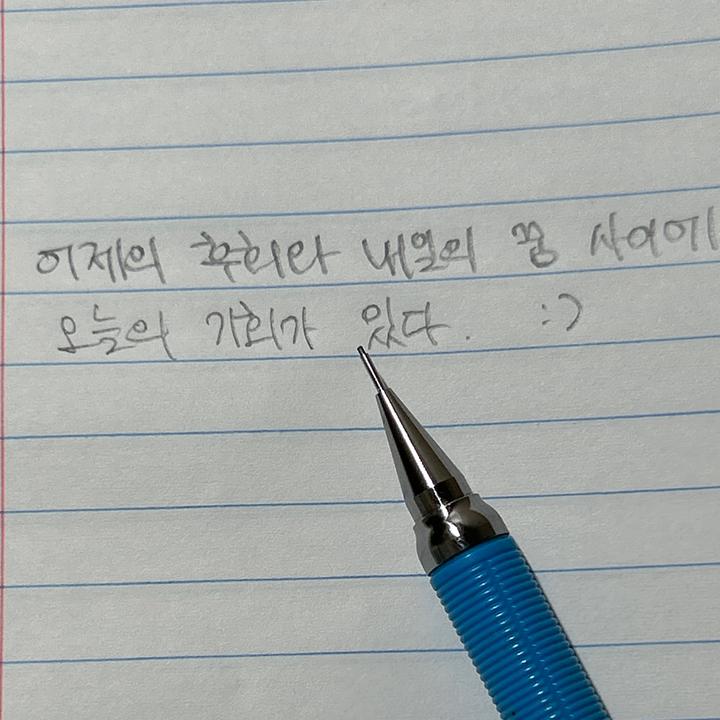 어제의 후회와 내일의 꿈 사이에
오늘의 기회가 있다. :)